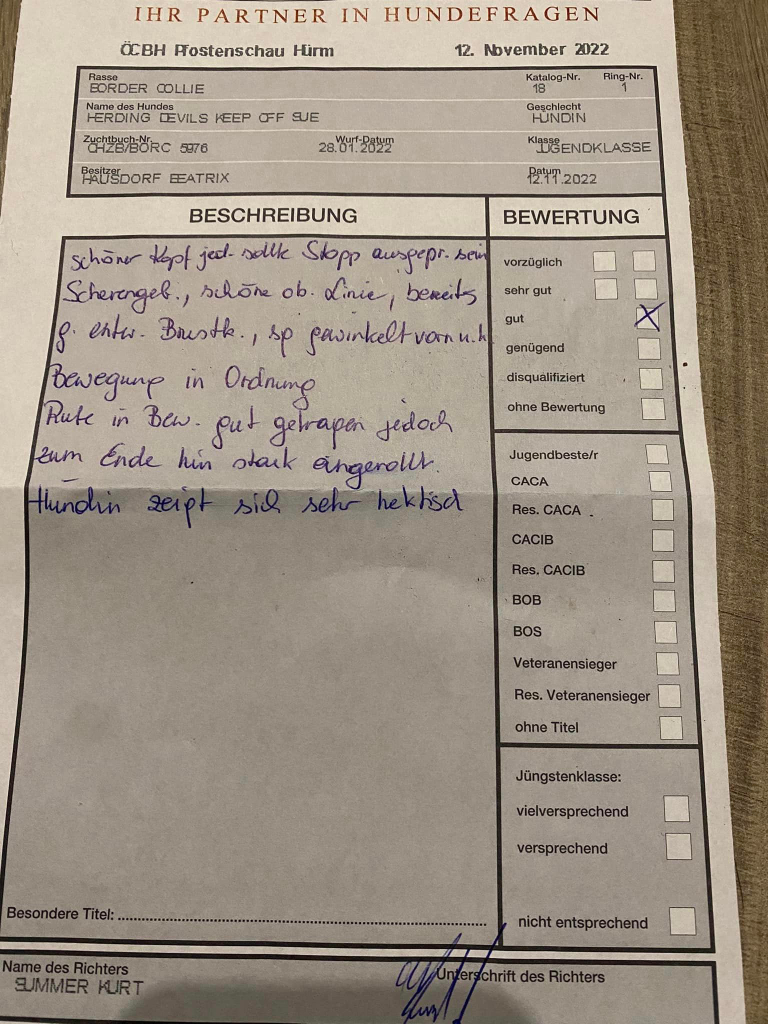 IHR PARTNER IN HUNDEFRAGEN
ÖCBH Pfostenschau Hürm 12. November 2022
Rasse Katalog-Nr. Ring-Nr.
BORDER COLLIE 18 1
Name des Hundes Geschlecht
HERDING DEVILS KEEP OFF SUE HÜNDIN
Zuchtbuch-Nr. Wurf-Datum Klasse
ÖHZB/BORC 5976 28.01.2022 JUGENDKLASSE
Besitzer Datum
HAUSDORF BEATRIX 12.11.2022
BESCHREIBUNG
schöner Kopf jed. sollte Stopp ausgepr. sein
Scherengeb., schöne ob. Linie, bereits
g. entw. Brustk., sp gewinkelt vorn u. h
Bewegung in Ordnung
Rute in Bew. gut getragen jedoch
zum Ende hin stark eingerollt.
Hündin zeigt sich sehr hektisch
Besondere Titel:
BEWERTUNG
vorzüglich
sehr gut
gut X
genügend
disqualifiziert
ohne Bewertung
Jugendbeste/r
CACA
Res. CACA
CACIB
Res. CACIB
BOB
BOS
Veteranensieger
Res. Veteranensieger
ohne Titel
Jüngstenklasse:
vielversprechend
versprechend
nicht entsprechend
Name des Richters Unterschrift des Richters
SUMMER KURT